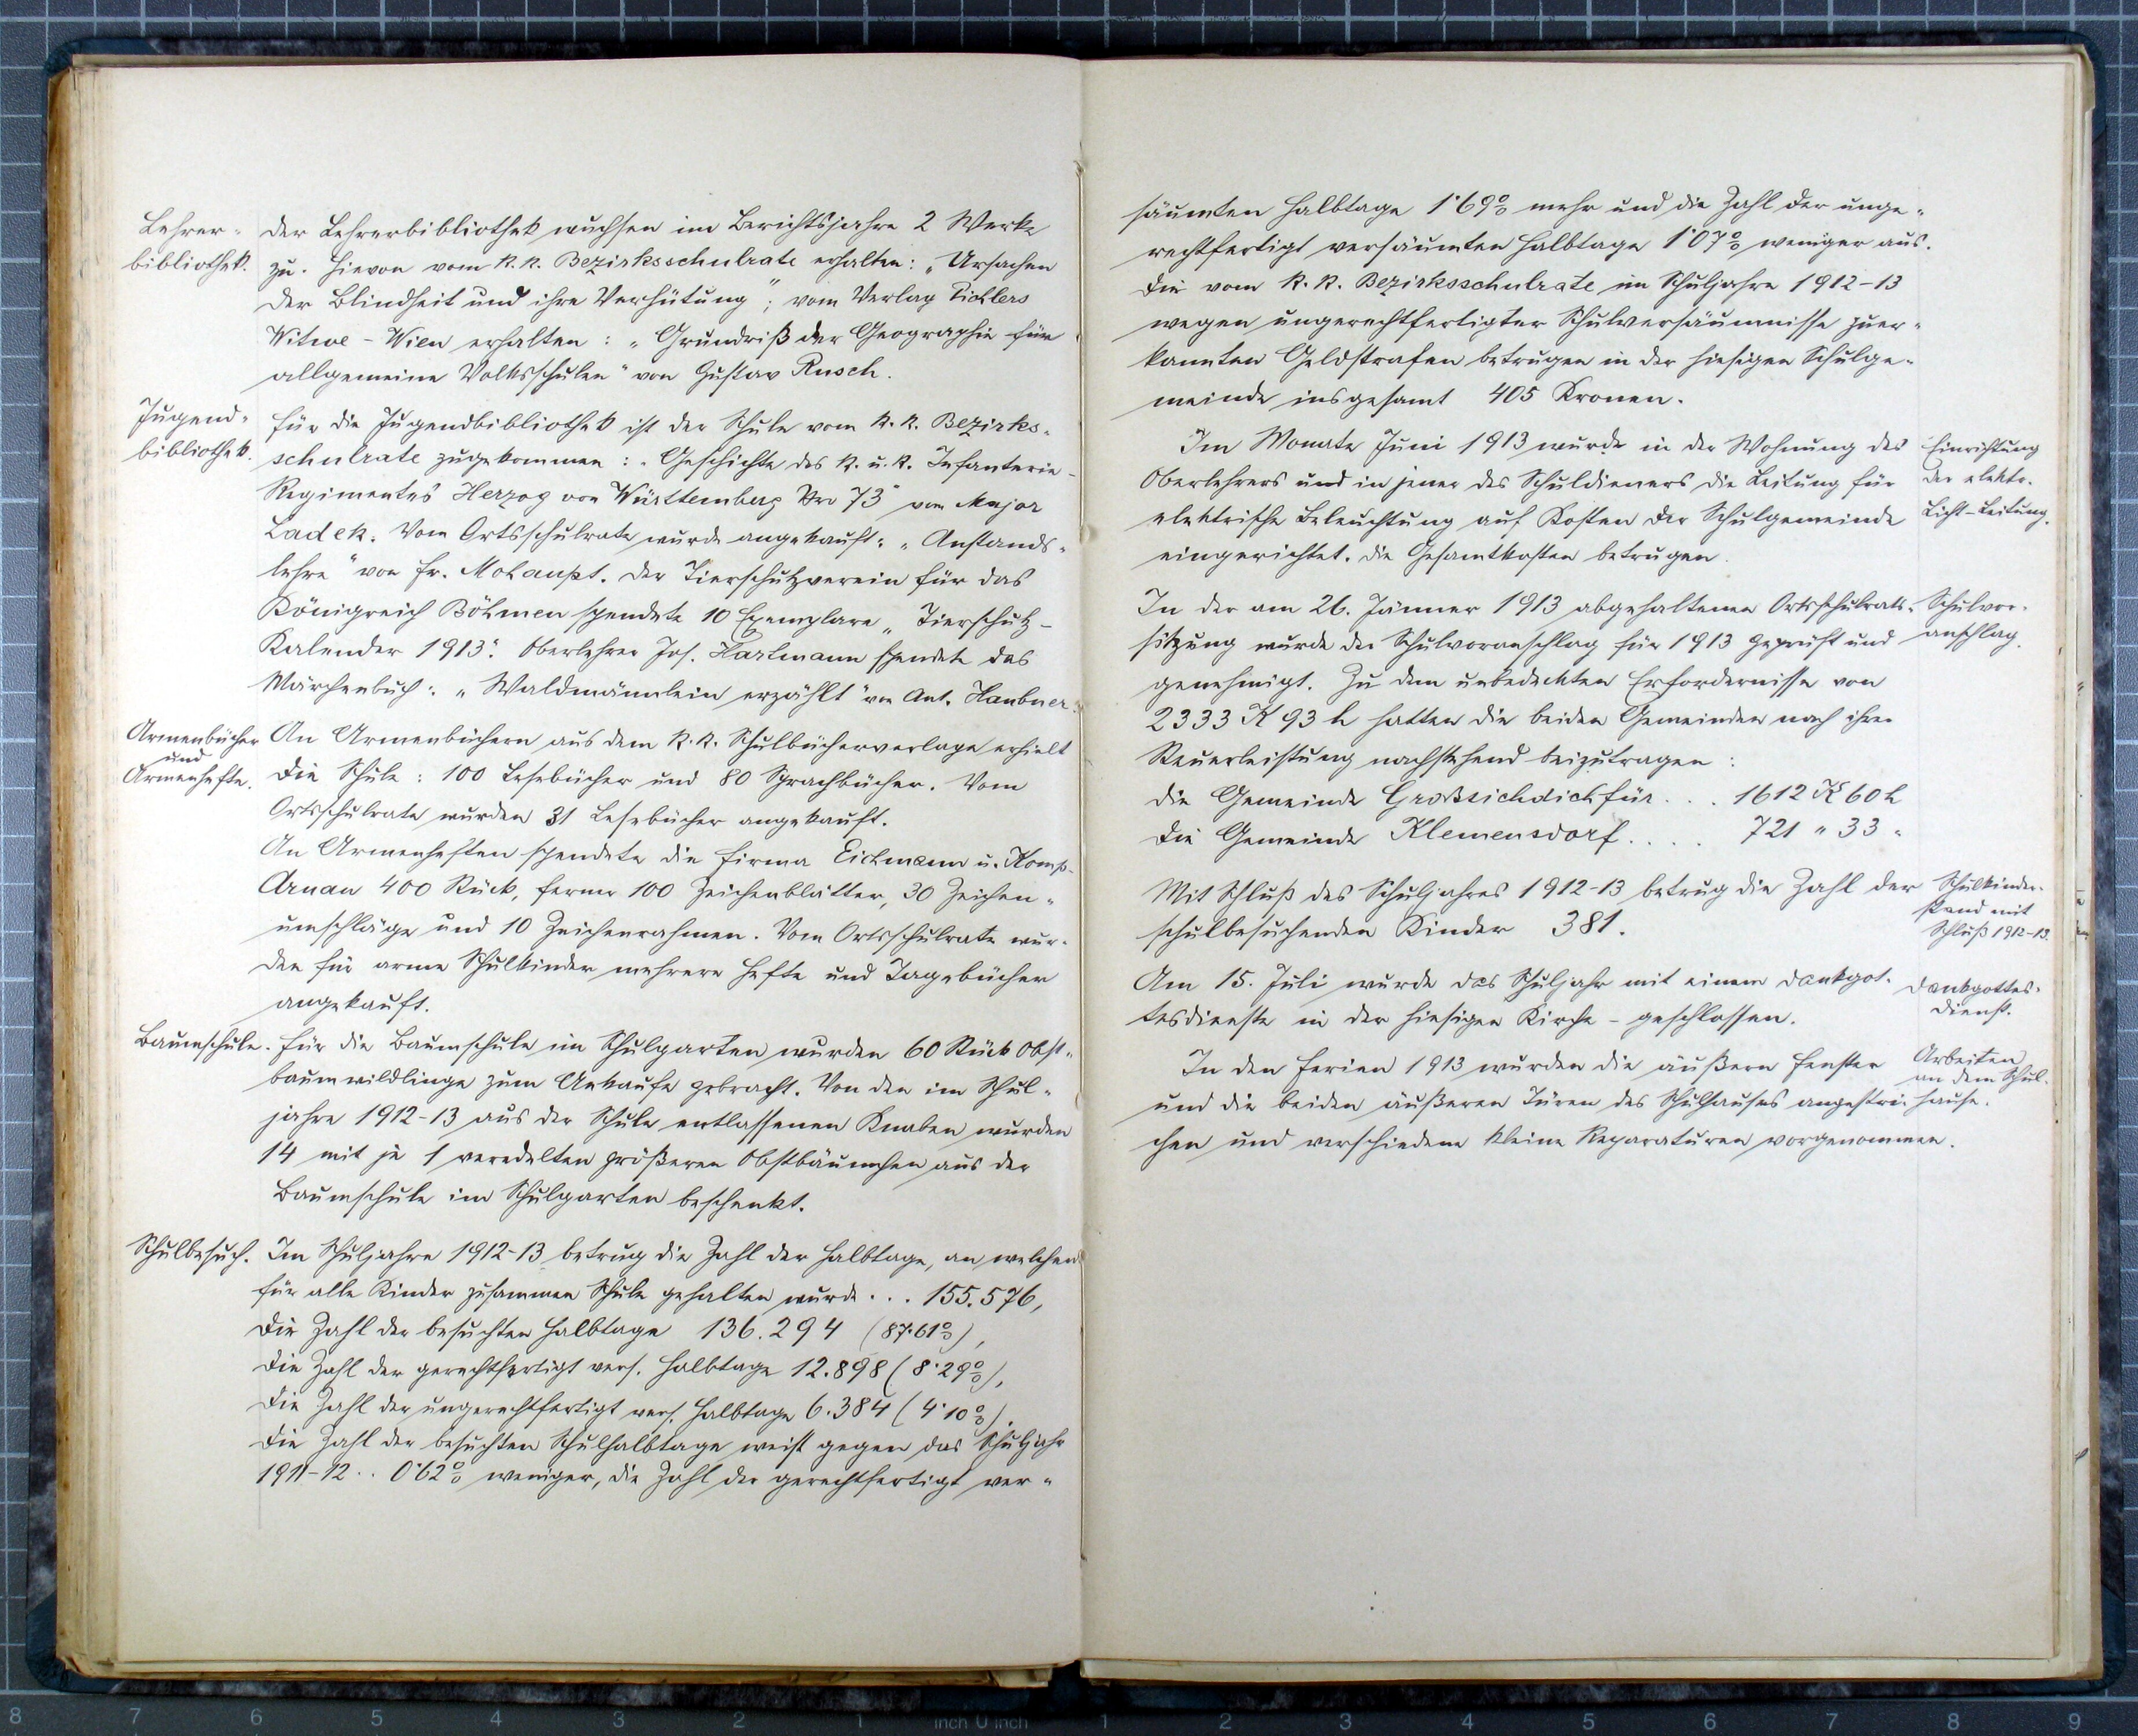 Lehrer-
bibliothek.
Der Lehrerbibliothek wuchsen im Berichtsjahre 2 Werke
zu. Hievon vom k. k. Bezirksschulrate erhalten: „Ursachen
der Blindheit und ihre Verhütung"; vom Verlag Pichlers
Witwe - Wien erhalten: „Grundriß der Geographie für
allgemeine Volksschulen" von Gustav Rusch.
Jugend-
bibliothek.
Für die Jugendbibliothek ist der Schule vom k. k. Bezirks-
schulrate zugekommen: „Geschichte des k. u. k. Infanterie-
Regimentes Herzog von Württemberg Nro 73" vom Major
Ladek. Vom Ortsschulrate wurde angekauft: „Anstands-
lehre" von Fr. Mohaupt. Der Tierschutzverein für das
Königreich Böhmen spendete 10 Exemplare „Tierschutz-
Kalender 1913". Oberlehrer Jos. Hartmann spendete das
Märchenbuch: „Waldmännlein erzählt" von Ant. Haubner.
Armenbücher
und
Armenhefte.
An Armenbüchern aus dem k. k. Schulbücherverlage erhielt
die Schule: 100 Lesebücher und 80 Sprachbücher. Vom
Ortsschulrate wurden 31 Lesebücher angekauft.
An Armenheften spendete die Firma Eichmann u. Komp.
Arnau 400 Stück, ferner 100 Zeichenblätter, 30 Zeichen-
umschläge und 10 Zeichenrahmen. Vom Ortsschulrate wur-
den für arme Schulkinder mehrere Hefte und Tagebücher
angekauft.
Baumschule.
Für die Baumschule im Schulgarten wurden 60 Stück Obst-
baumwildlinge zum Ankaufe gebracht. Von den im Schul-
jahre 1912-13 aus der Schule entlassenen Knaben wurden
14 mit je 1 veredelten größeren Obstbäumchen aus der
Baumschule im Schulgarten beschenkt.
Schulbesuch.
Im Schuljahre 1912-13 betrug die Zahl der Halbtage, an welchen
für alle Kinder zusammen Schule gehalten wurde... 155.576,
die Zahl der besuchten Halbtage 136.294 (87·61%),
die Zahl der gerechtfertigt vers. Halbtage 12.898 (8·29%),
die Zahl der ungerechtfertigt vers. Halbtage 6.384 (4·10%).
Die Zahl der besuchten Schulhalbtage weist gegen das Schuljahr
1911-12.. 0·62% weniger, die Zahl der gerechtfertigt ver-
säumten Halbtage 1·69% mehr und die Zahl der unge-
rechtfertigt versäumten Halbtage 1·07% weniger aus.
Die vom k. k. Bezirksschulrate im Schuljahre 1912-13
wegen ungerechtfertigter Schulversäumnisse zuer-
kannten Geldstrafen betrugen in der hiesigen Schulge-
meinde insgesamt 405 Kronen.
Im Monate Juni 1913 wurde in der Wohnung des
Oberlehrers und in jener des Schuldieners die Leitung für
elektrische Beleuchtung auf Kosten der Schulgemeinde
eingerichtet. Die Gesamtkosten betrugen.
Einrichtung
der elektr.
Licht-Leitung.
In der am 26. Jänner 1913 abgehaltenen Ortsschulrats-
sitzung wurde der Schulvoranschlag für 1913 geprüft und
genehmigt. Zu dem unbedeckten Erfordernisse von
2333 K 93 h hatten die beiden Gemeinden nach ihrer
Steuerleistung nachstehend beizutragen:
die Gemeinde Großsichdichfür... 1612 K 60 h
die Gemeinde Klemensdorf.... 721 " 33 "
Schulvor-
anschlag.
Mit Schluß des Schuljahres 1912-13 betrug die Zahl der
schulbesuchenden Kinder 381.
Schulkinder-
stand mit
Schluß 1912-13.
Am 15. Juli wurde das Schuljahr mit einem Dankgot-
tesdienste in der hiesigen Kirche - geschlossen.
Dankgottes-
dienst.
In den Ferien 1913 wurden die äußern Fenster
und die beiden äußeren Türen des Schulhauses angestri-
chen und verschiedene kleine Reparaturen vorgenommen.
Arbeiten
an dem Schul-
hause.
8 7 6 5 4 3 2 1 inch U inch 1 2 3 4 5 6 7 8 9